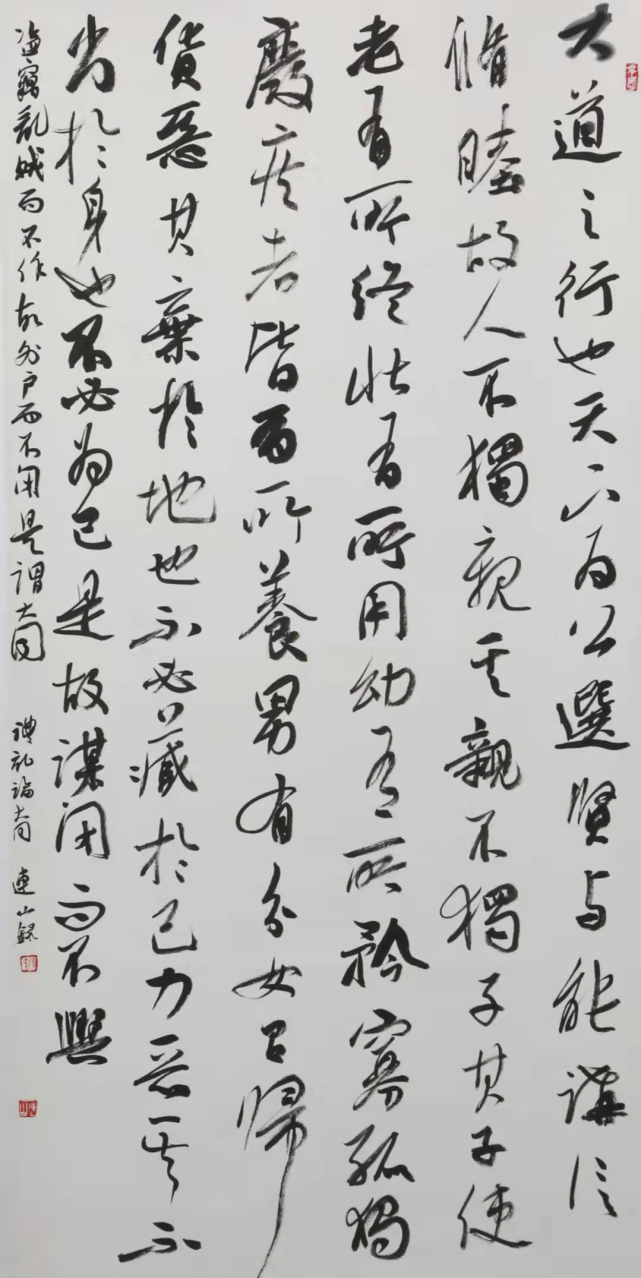 大道之行也天下为公選賢与能講信
脩睦故人不獨親其親不獨子其子使
老有所终壯有所用幼有所矜寡孤獨
廢疾者皆有所養男有分女有歸
貨惡其棄於地也不必藏於己力惡其不
出於身也不必为己是故謀闭而不興
盗竊亂賊而不作故外户而不闭是謂大同 禮記論大同 連山録